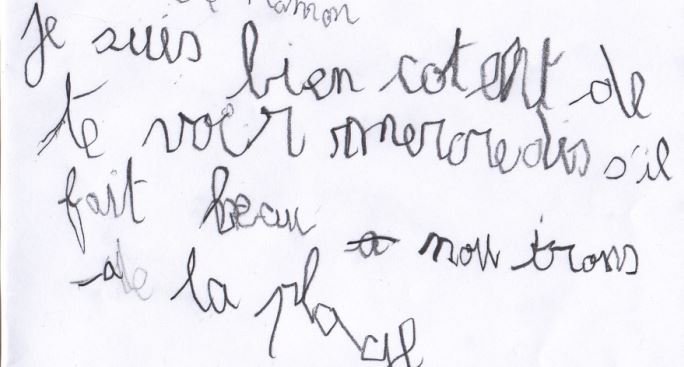 Je suis
bien cotent de
te voir mercredis s'il
fait beau
nou irons
de la plage